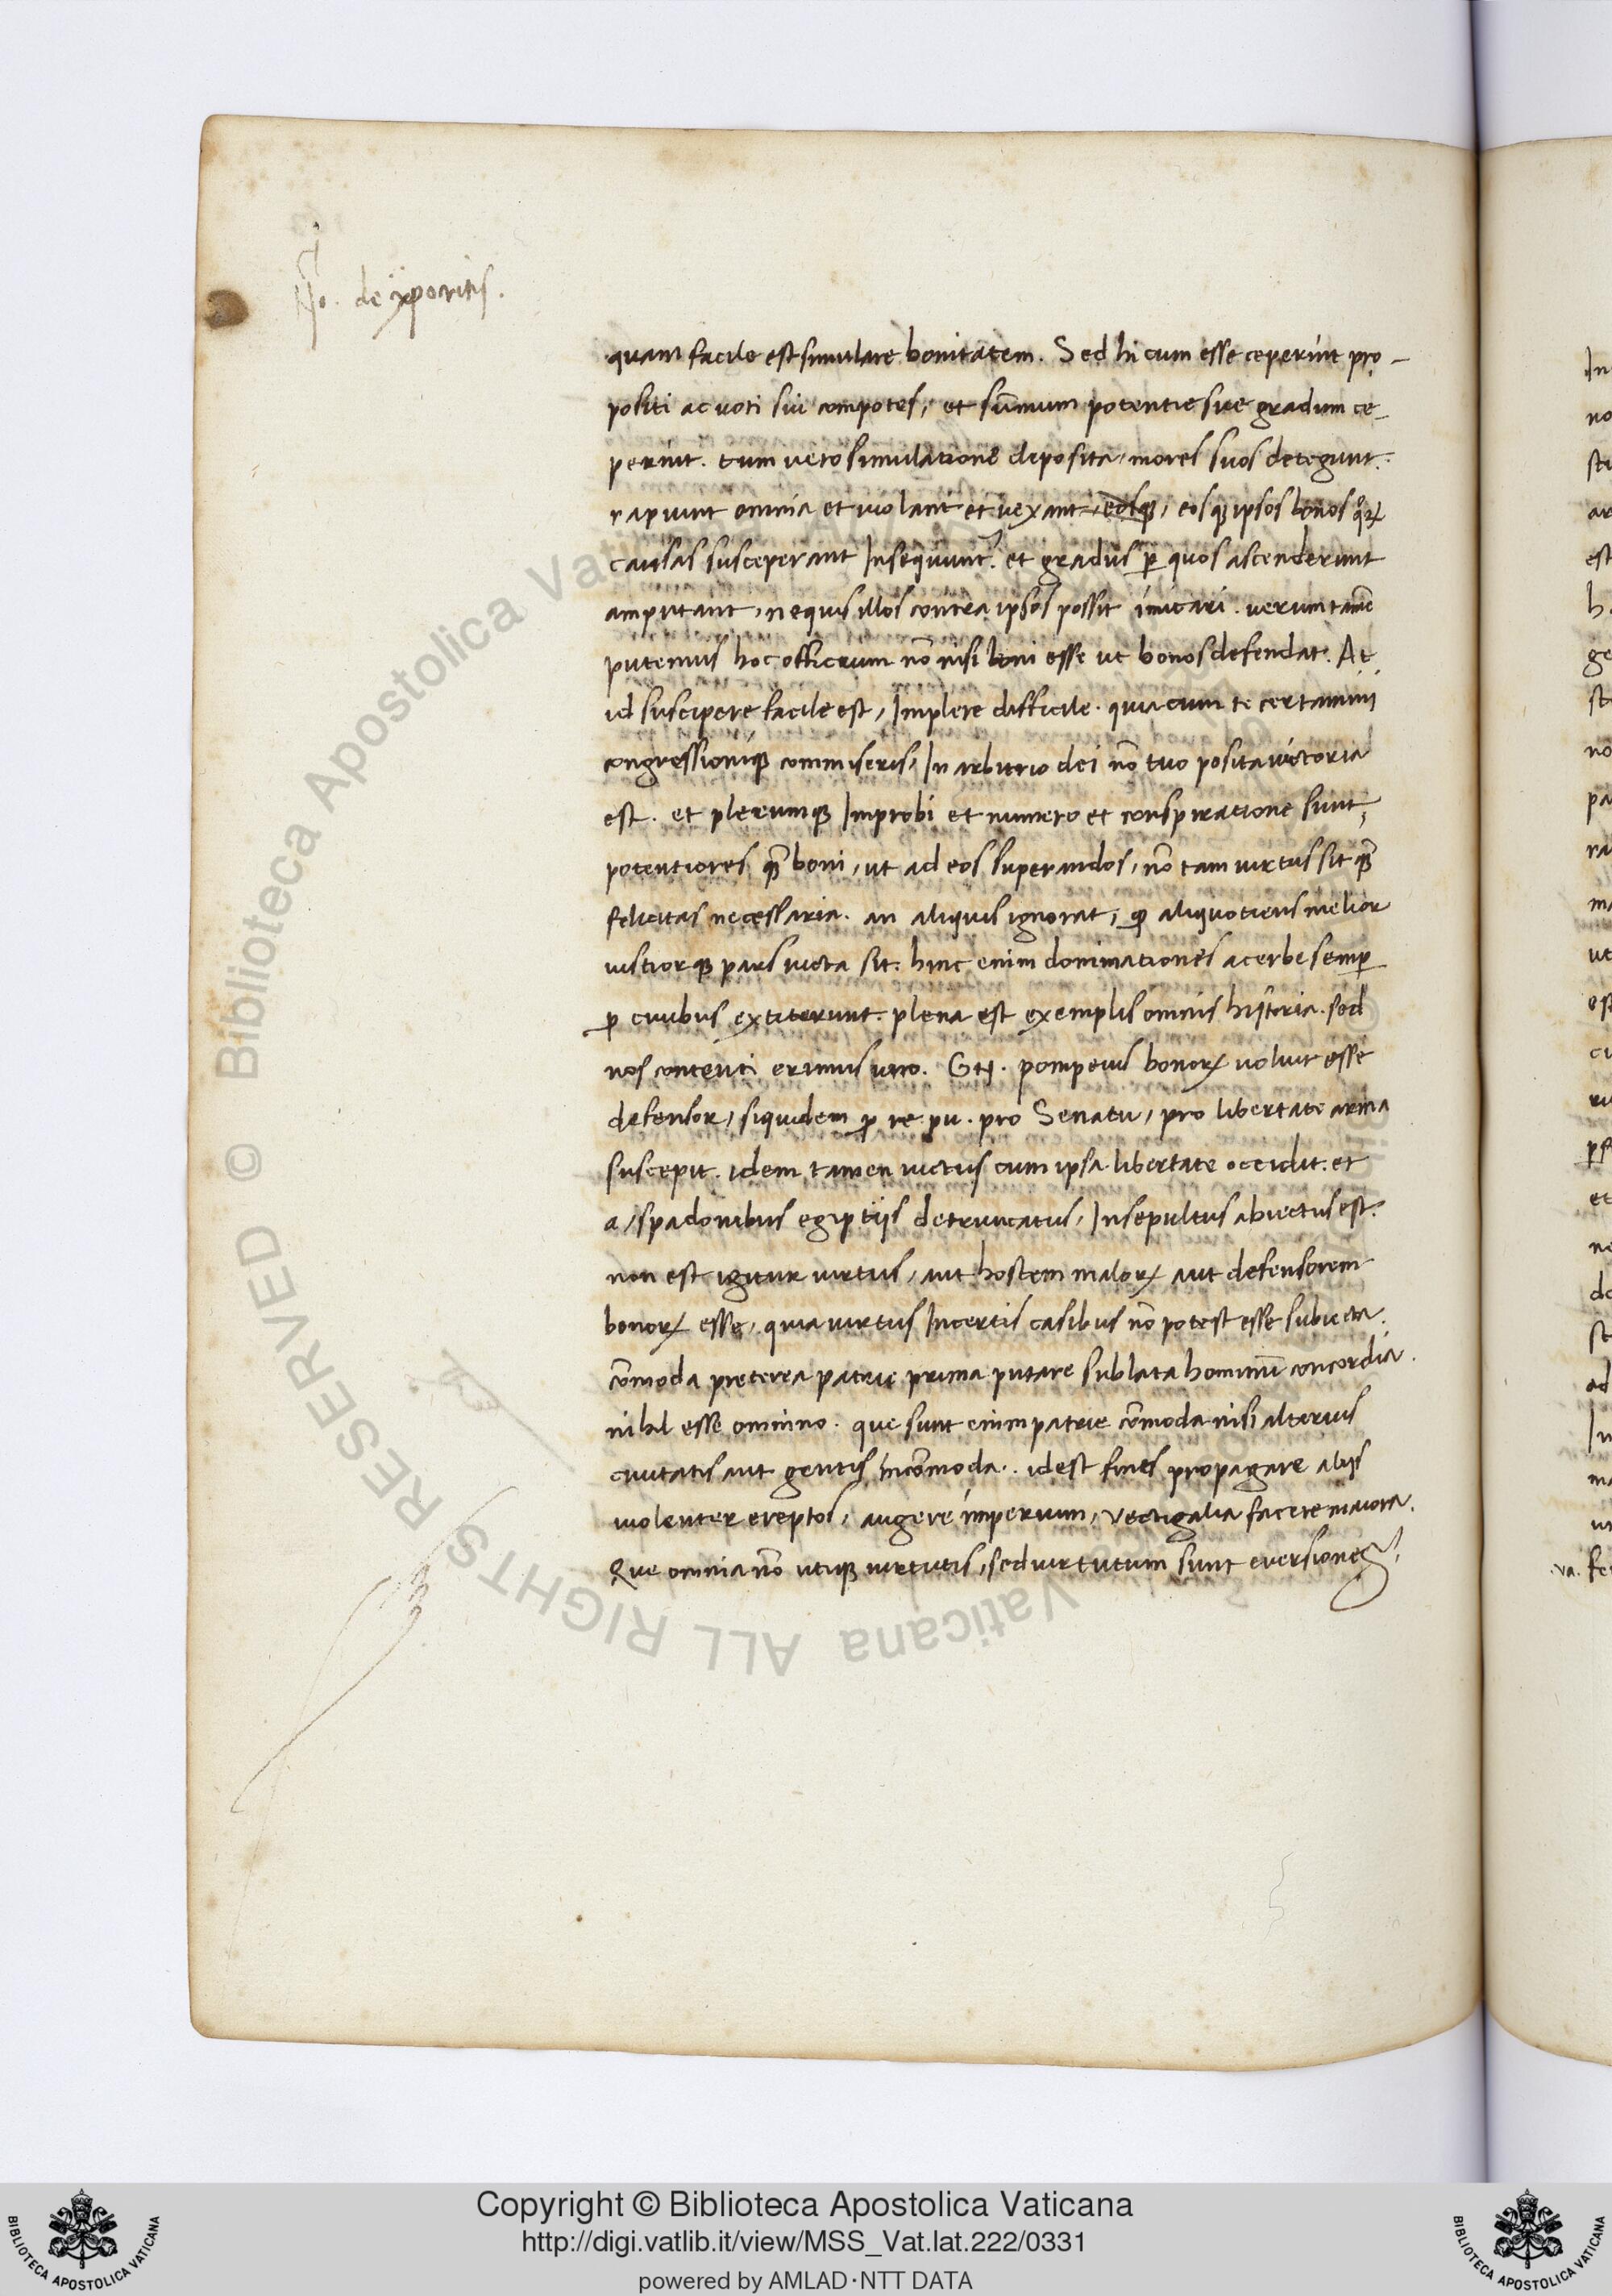 de ypocritis.
quam facile est simulare bonitatem. Sed hi cum esse ceperint pro-
positi ac uoti sui compotes, et sūmum potentie sue gradum ce-
perint. tum uero simulatione deposita, mores suos detegunt.
rapiunt omnia et uiolant et uexant, eosqꝫ, eosqꝫ ipsos bonos qͦrꝝ
causas susceperant Insequunt᷑. et gradus ꝑ quos ascenderunt
amputant, nequis illos contra ipsos possit imitari. uerum tamē
putemus hoc officium nō nisi boni esse ut bonos defendat. At
id suscipere facile est, Implere difficile. quia cum te certamini
congressioniqꝫ commiseris, In arbitrio dei nō tuo posita uictoria
est. et plerumqꝫ Improbi et numero et conspiratione sunt
potentiores qꝫ̄ boni, ut ad eos superandos, nō tam uirtus sit qꝫ̄
felicitas necessaria. an aliquis ignorat, ꝙ aliquotiens melior
iustiorqꝫ pars uicta sit. hinc enim dominationes acerbe semꝑ
ꝑ ciuibus extiterunt. plena est exemplis omnis hystoria. sed
nos contenti erimus uno. GN. pompeius bonorꝝ uoluit esse
defensor, siquidem ꝓ re pu. pro Senatu, pro libertate arma
suscepit. idem tamen uictus cum ipsa libertate occidit. et
a, spadonibus egiptiis detruncatus, Insepultus abiectus est.
non est igitur uirtus, aut hostem malorꝝ aut defensorem
bonorꝝ esse, quia uirtus Incertis casibus nō potest esse subiecta.
cōmoda preterea patrie prima putare sublata hominū concordia.
nihil esse omnino. que sunt enim patrie cōmoda nisi alterius
ciuitatis aut gentis Incōmoda. idest fines propagare aliis
uiolenter ereptos, augere imperium, uectigalia facere maiora.
Que omnia nō utiqꝫ uirtutis, sed uirtutum sunt euersiones,
© Biblioteca Apostolica Vaticana ALL RIGHTS RESERVED
Copyright © Biblioteca Apostolica Vaticana
http://digi.vatlib.it/view/MSS_Vat.lat.222/0331
powered by AMLAD·NTT DATA
BIBLIOTECA APOSTOLICA VATICANA
BIBLIOTECA APOSTOLICA VATICANA